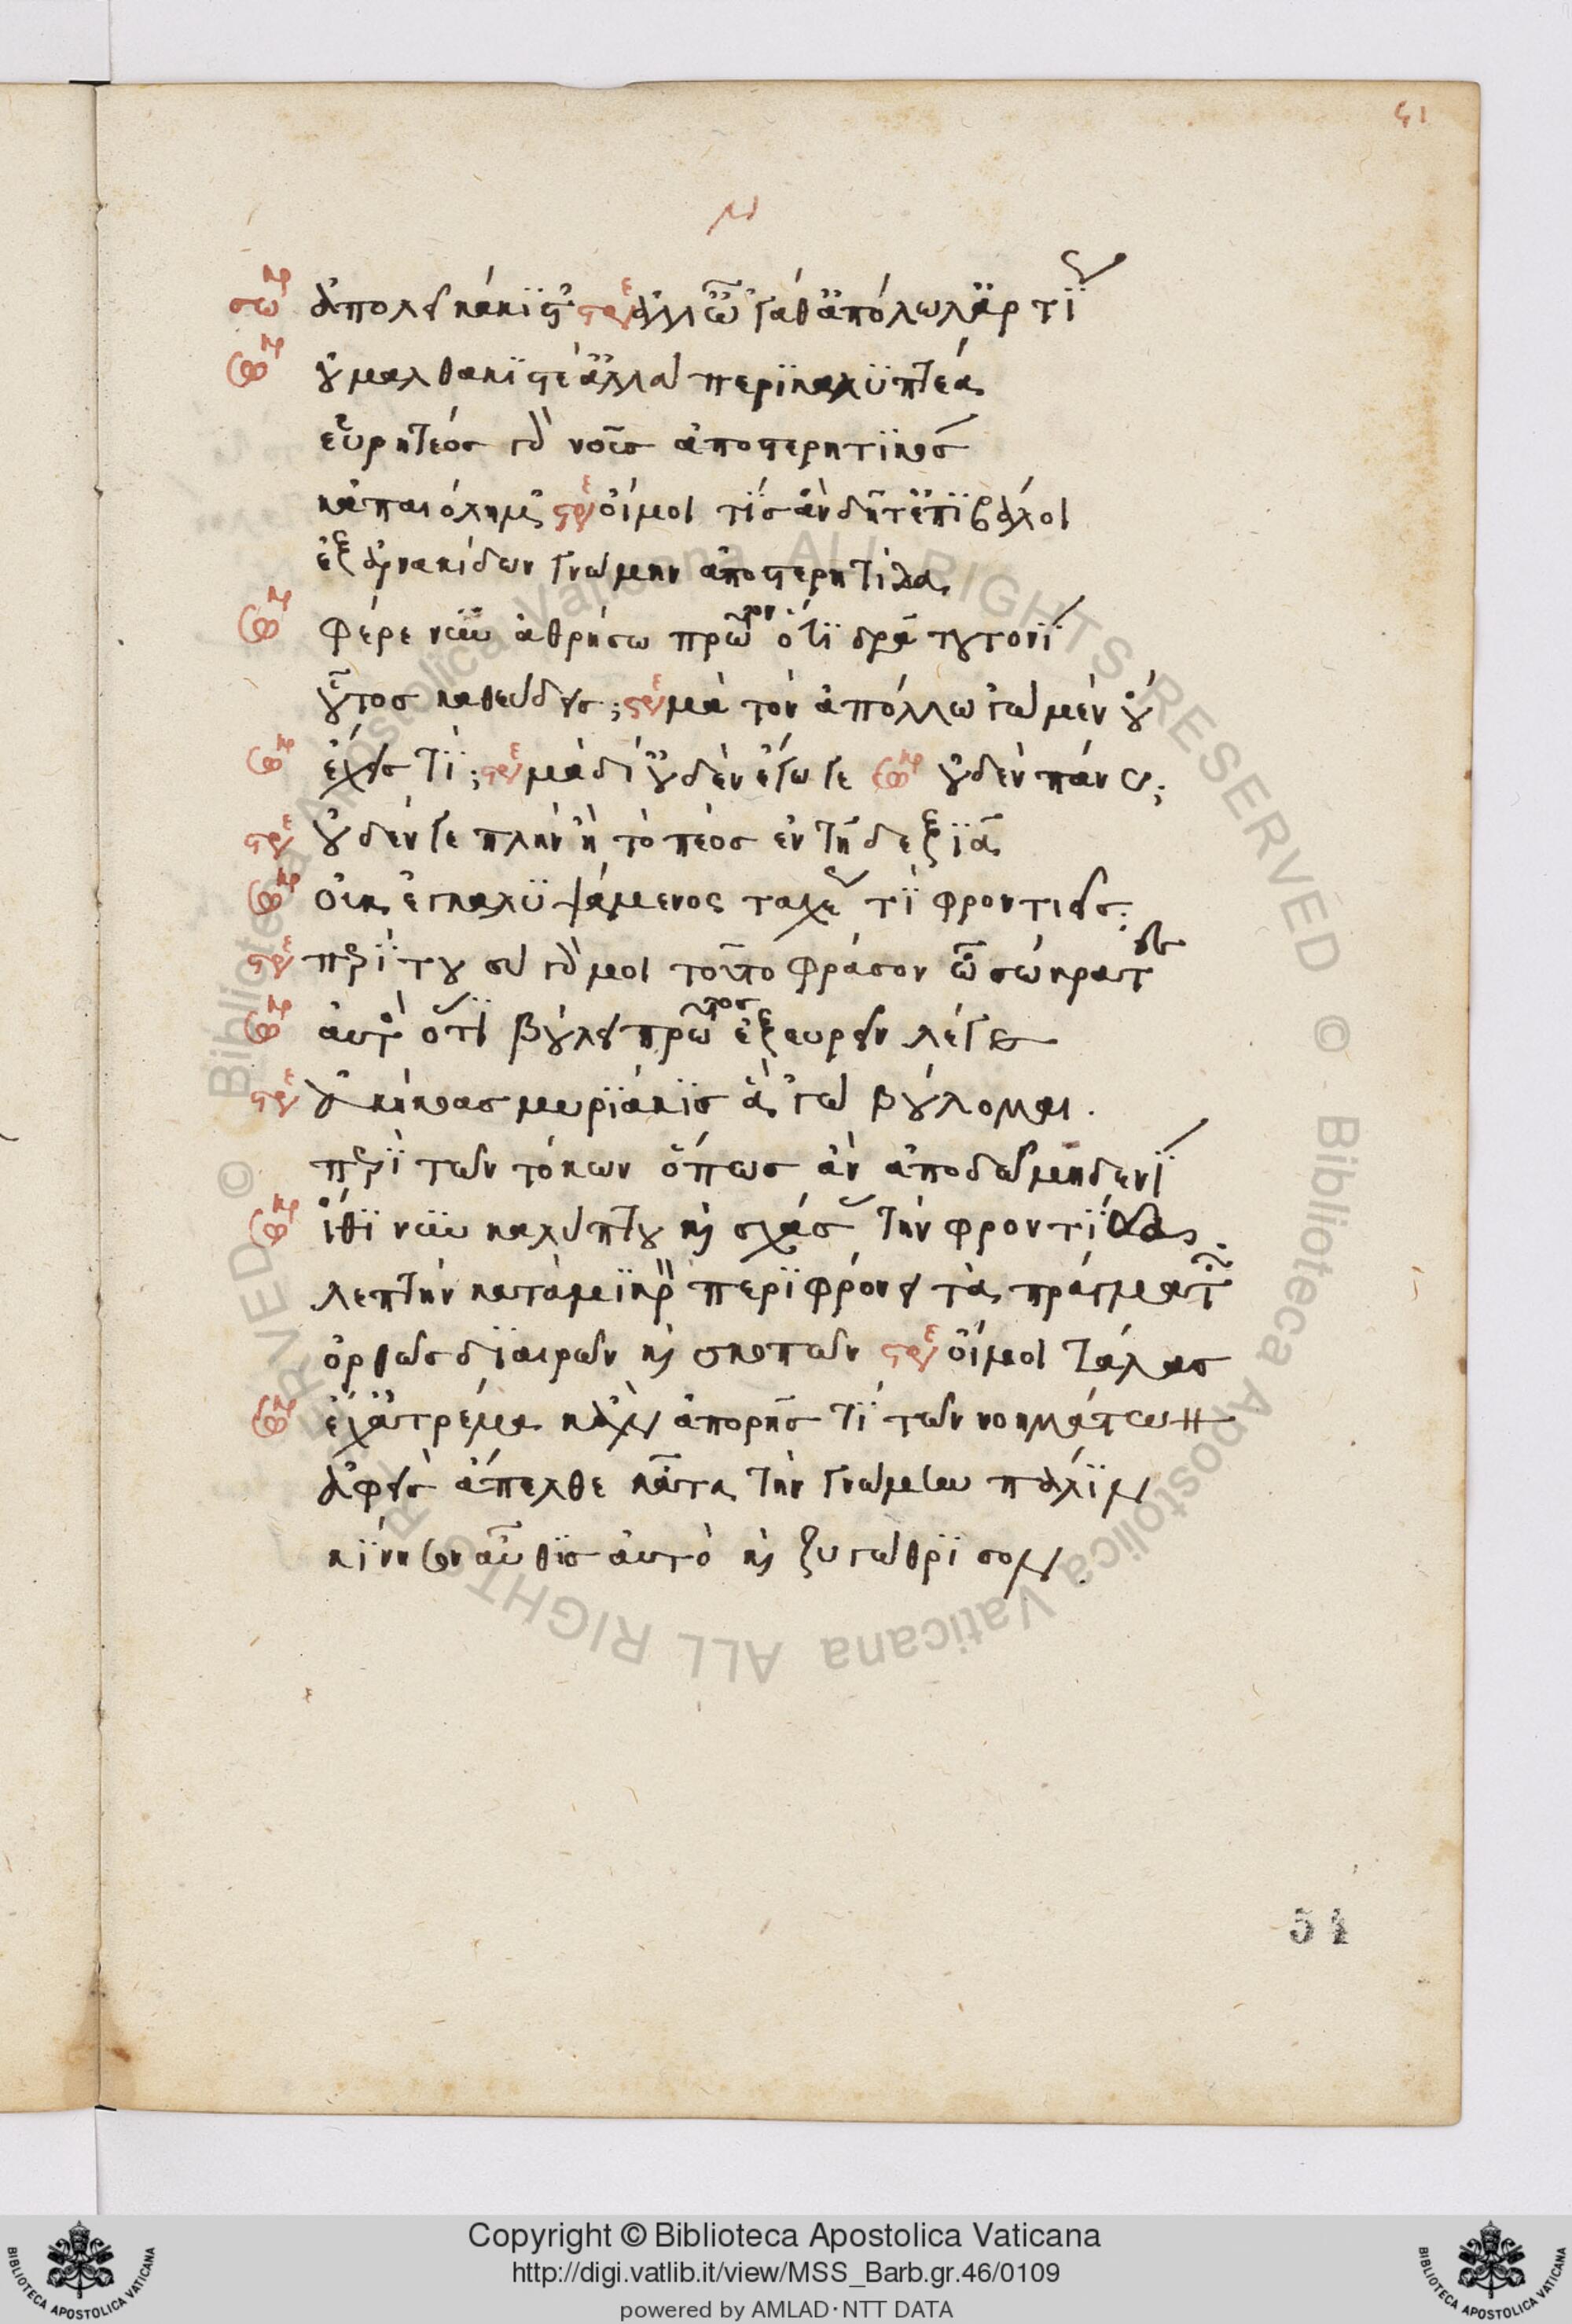 51
σω̣ ἀπολεῖ κάκιστ' στρ ἀλλ' ὦ 'γάθ' ἀπόλωλ' ἄρτι
σω οὐ μαλθακιστέ' ἀλλὰ περικαλυπτέα
εὑρητέος γὰρ νοῦς ἀποστερητικὸς
κἀπαιόλημ' στρ οἴμοι τίς ἂν δῆτ' ἐπιβάλοι
ἐξ ἀρνακίδων γνώμην ἀποστερητίδα
σω φέρε νῦν ἀθρήσω πρῶτον ὅτι δρᾷ τουτονὶ
οὗτος καθεύδεις; στρ μὰ τὸν ἀπόλλω 'γὼ μὲν οὔ
σω ἔχεις τί; στρ μὰ δί' οὐδὲν ἔγωγε σω οὐδὲν πάνυ;
στρ οὐδέν γε πλὴν ἢ τὸ πέος ἐν τῇ δεξιᾷ
σω οὐκ ἐγκαλυψάμενος ταχέως τί φροντιεῖς;
στρ περὶ του σὺ γάρ μοι τοῦτο φράσον ὦ σώκρατες
σω αὐτὸς ὅτι βούλει πρῶτος ἐξευρεῖν λέγε
στρ ἀκήκοας μυριάκις ἃ 'γὼ βούλομαι.
περὶ τῶν τόκων ὅπως ἂν ἀποδῶ μηδενὶ
σω ἴθι νῦν καλύπτου καὶ σχάσας τὴν φροντίδα
λεπτὴν κατὰ μικρὸν περιφρόνει τὰ πράγματα
ὀρθῶς διαιρῶν καὶ σκοπῶν στρ οἴμοι τάλας
σω ἔχ' ἀτρέμα κἂν ἀπορῇς τι τῶν νοημάτων
ἀφεὶς ἄπελθε κᾆτα τὴν γνώμην πάλιν
κίνησον αὖθις αὐτὸ καὶ ζυγώθρισον.
54
© Biblioteca Apostolica Vaticana ALL RIGHTS RESERVED © Biblioteca Apostolica Vaticana ALL RIGHTS RESERVED
Copyright © Biblioteca Apostolica Vaticana
http://digi.vatlib.it/view/MSS_Barb.gr.46/0109
powered by AMLAD·NTT DATA
BIBLIOTECA APOSTOLICA VATICANA
BIBLIOTECA APOSTOLICA VATICANA